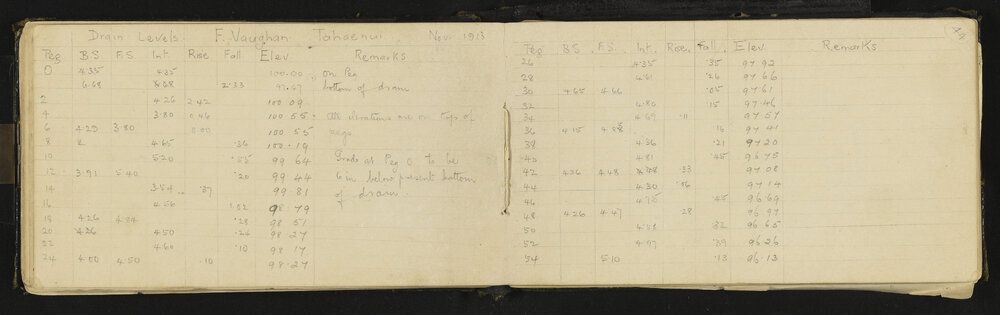 Drain Levels. F. Vaughan Tahaenui. Nov. 1913
Peg B.S. F.S. Int. Rise Fall Elev. Remarks
0 4.35 4.35 100.00 on Peg
6.68 6.68 2.33 97.67 bottom of drain
2 4.26 2.42 100.09
4 3.80 0.46 100.55 All elevations are on tops of
6 4.29 3.80 0.00 100.55 pegs
8 4.65 .36 100.19
10 5.20 .55 99.64 Grade at Peg 0 to be
12 3.91 5.40 .20 99.44 6 in below present bottom
14 3.54 .37 99.81 of drain
16 4.56 1.02 98.79
18 4.26 4.84 .28 98.51
20 4.26 4.50 .24 98.27
22 4.60 .10 98.17
24 4.00 4.50 .10 98.27
44
Peg B.S. F.S. Int. Rise. Fall. Elev. Remarks
26 4.35 .35 97.92
28 4.61 .26 97.66
30 4.65 4.66 .05 97.61
32 4.80 .15 97.46
34 4.69 97.57
36 4.15 .16 97.41
38 4.36 .21 97.20
40 4.81 .45 96.75
42 4.36 4.48 4.48 .33 97.08
44 4.30 .06 97.14
46 4.75 .45 96.69
48 4.26 4.47 .28 96.97
50 4.58 .32 96.65
52 4.97 .39 96.26
54 5.10 .13 96.13